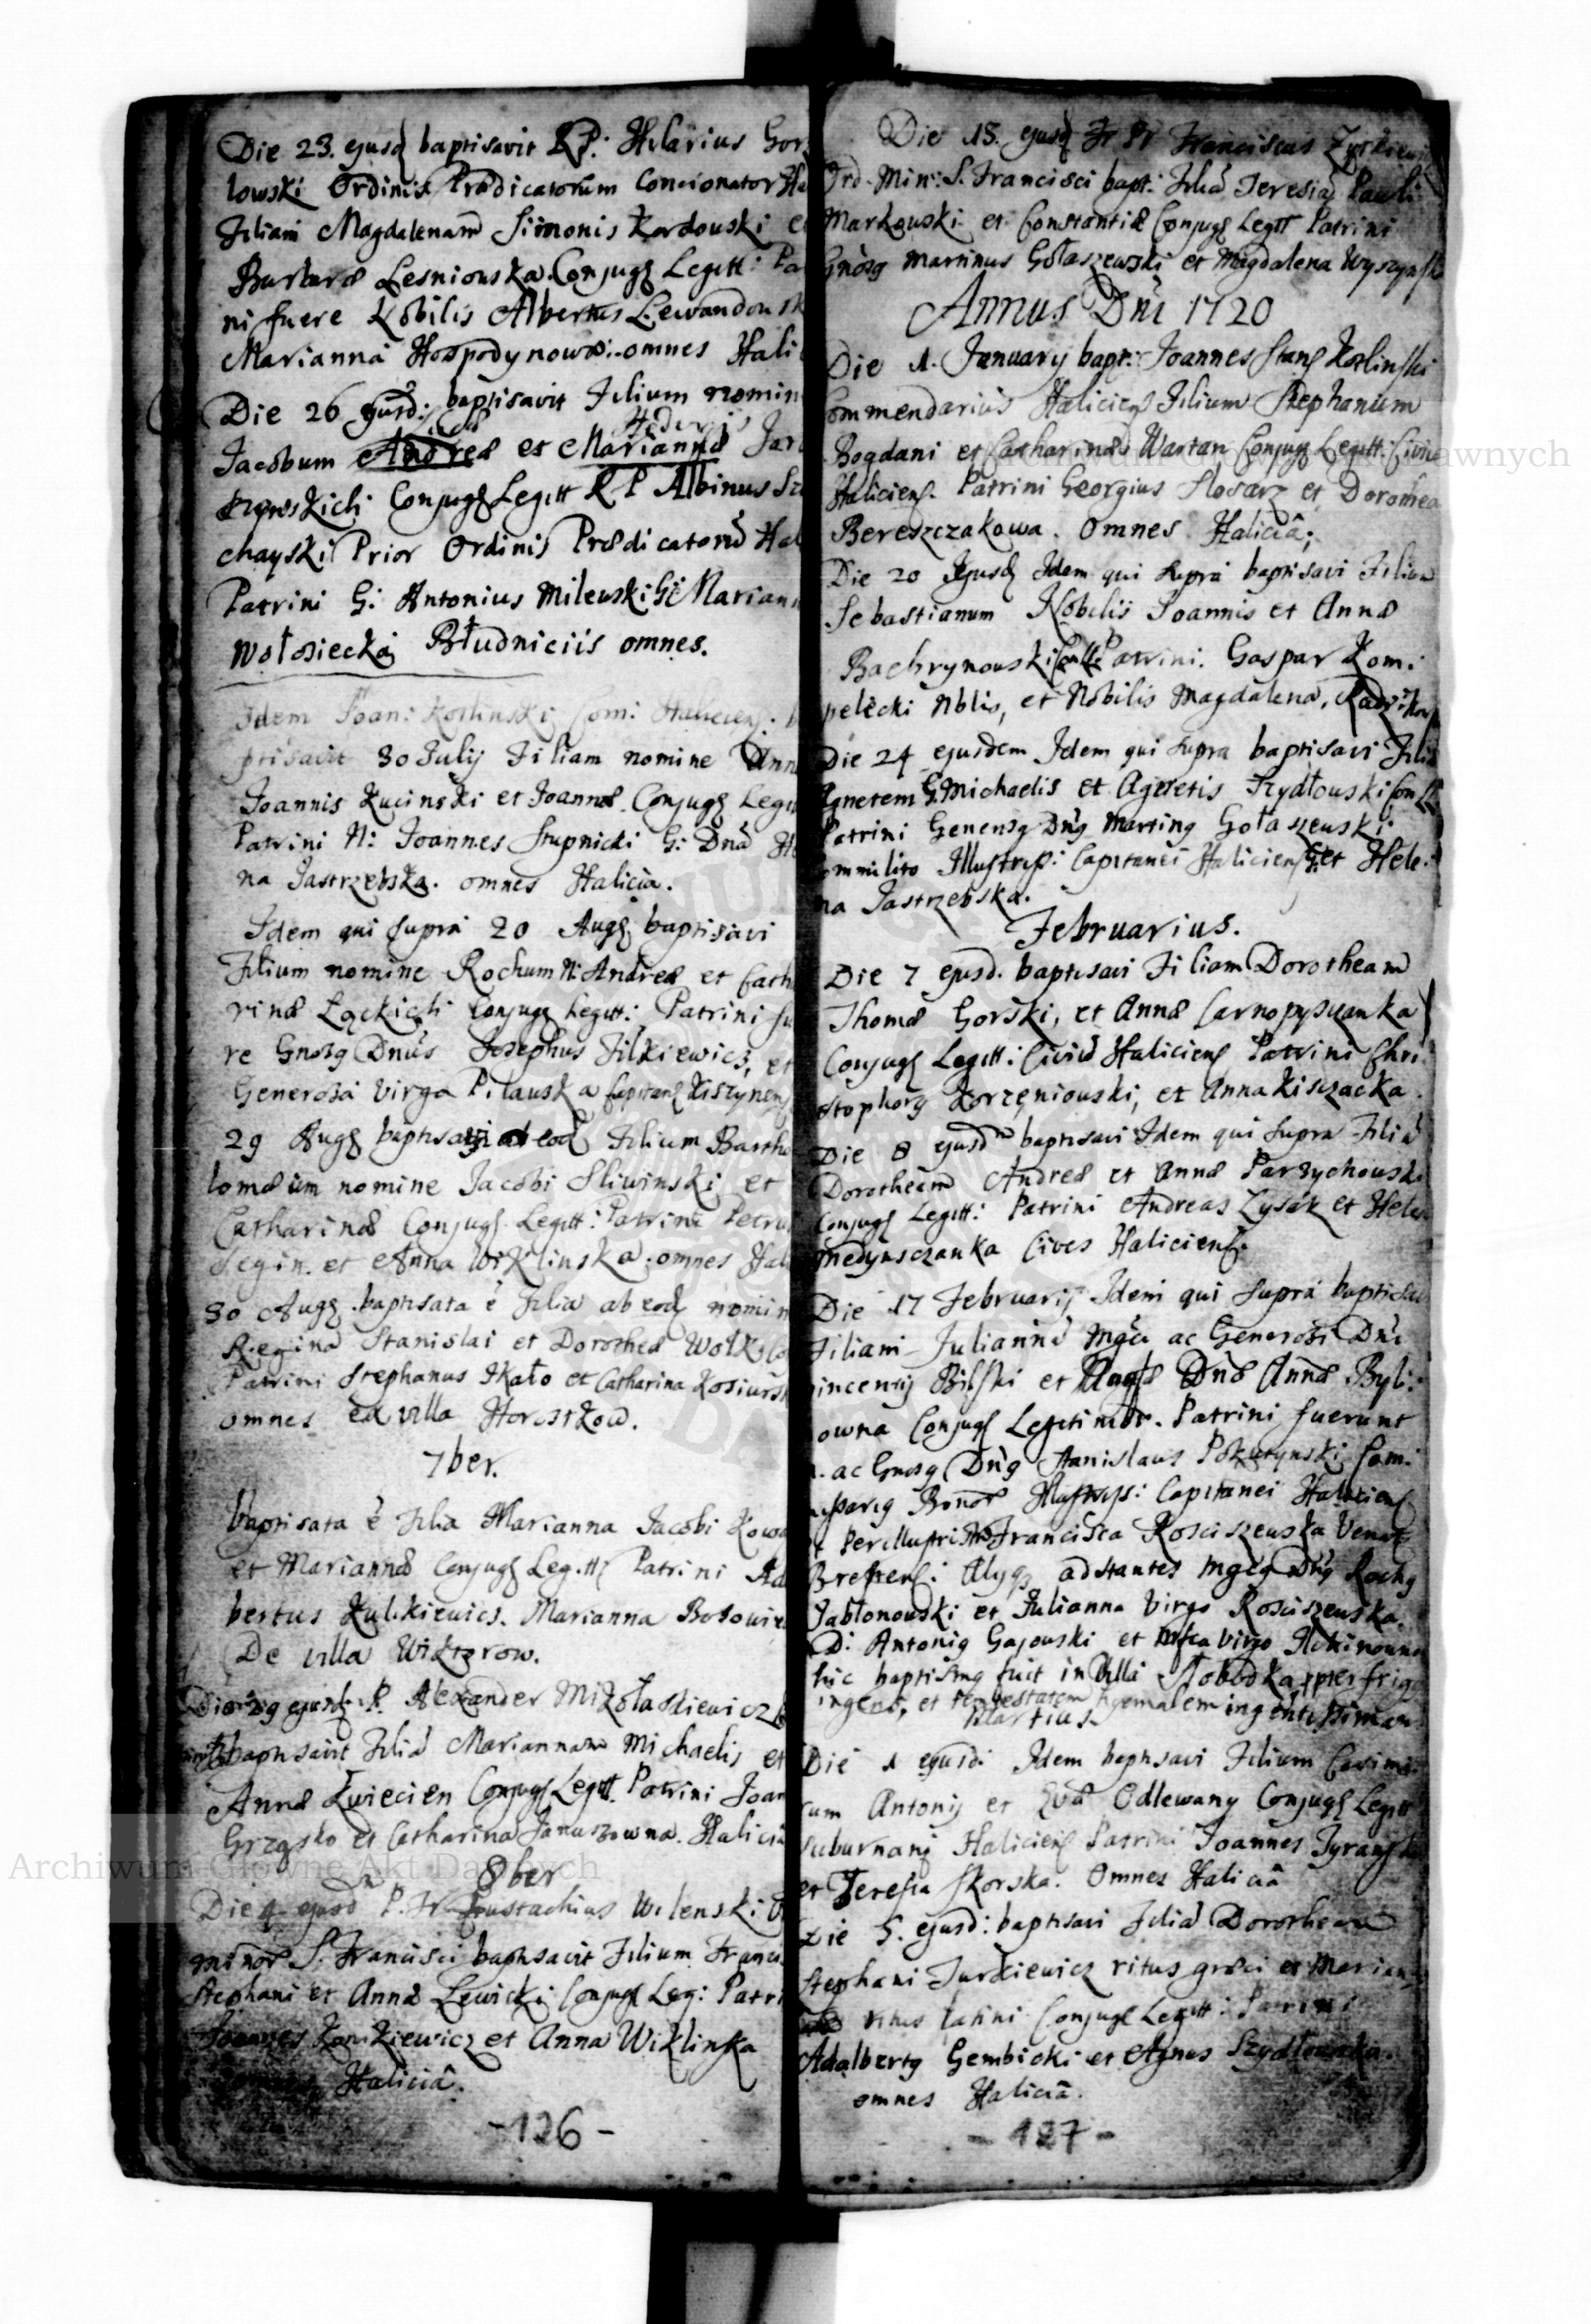 Die 23. ejusd baptisavit R P. Hilarius Gor
lowski Ordinis Prædicatorum Concionator Ha
Filiam Magdalenam Simonis Kordouski e
Barbaræ Lesniouska. Conjugũ Legitt: Pa
ni fuere Nobilis Albertus Lewandousk
Marianna Hospodynowa. omnes Hali
Die 26 ejusd: baptisavit Filium nomin
Jacobum Andreæ et Mariannæ Jar
Hedvigis
Conjugũ Legitt R P Albinus
chayski Prior Ordinis Prædicatorũ Hal
Patrini G: Antonius Milewski G: Mariann
Wołosiecka Błudniciis omnes.
Idem Joan: Koslinski Com: Haliciens. b
ptisavit 30 Julij Filiam nomine Ann
Joannis Kucinski et Joannæ Conjugũ Legit
Patrini N: Joannes Stupnicki G: Dnã He
na Jastrzebska. omnes Halicia.
Idem qui supra 20 Augũ baptisavi
Filium nomine Rochum N: Andreæ et Cath
rinæ Łąckich Conjugũ Legitt: Patrini fu
re Gnosg Dnus Josephus Filkiewicz, et
Generosa Virgo Pilawska
29 Augũ baptisa ab eod Filium Bartho
lomæum nomine Jacobi Sliwinski et
Catharinæ Conjugũ Legitt: Patrini Petru
Segin. et Anna Wiklinska. omnes Hali
30 Augũ baptisata ẽ Filia ab eod nomin
Regina Stanislai et Dorotheæ Wołk
Patrini Stephanus Skało et Catharina Kosiurs
omnes ex villa Horostkow.
7ber.
baptisata ẽ Filia Marianna Jacobi Kowa
et Mariannæ Conjugũ Legitt Patrini Ad
bertus Kulikiewics. Marianna Bosowi
De villa Wiktorow.
Die 29 ejusd P. Alexander Mikołaskiewicz
baptisavit Filiã Mariannam Michaelis et
Annæ Kwiecien Conjugũ Legitt. Patrini Joan
Grzesko et Catharina Januszowna. Halicia
8ber
Die 4 ejusd P. Fr Eustachius Wilenski O
minor S. Francisci baptisavit Filium Franci
Stephani et Annæ Lewicki Conjugũ Leg: Patri
Joannes Kowkiewicz et Anna Wiklinska
Halicia.
-126-
Die 15. ejusd Fr Franciscus Zyrkiewi
Ord. Min: S. Francisci bapt: Filiã Teresiã Pauli
Markowski et Constantiæ Conjugũ Legitt Patrini
Gnosg Martinus Gołaszewski et Magdalena Wyszynsk
Annus Dni 1720
Die 1. January bapt: Joannes Stanũ Koslinski
Commendarius Haliciens Filium Stephanum
Bogdani et Catharinæ Wartan Conjugũ Legitt: Civiũ
Haliciens. Patrini Georgius Slosarz et Dorothea
Bereszczakowa. Omnes Halicia;
Die 20 Ejusd Idem qui supra baptisavi Filium
Sebastianum Nobilis Joannis et Annæ
Bachrynouski Patrini. Gaspar Kom:
pelecki Nblis, et Nobilis Magdalena,
Die 24 ejusdem Idem qui supra baptisavi Filiã
Agnetem G. Michaelis et Agnetis Szydłouski
Patrini Generosg Dng Marting Gołaszewski
ommilito Illustriss: Capitanei Haliciens et Hele
na Jastrzebska.
Februarius.
Die 7 ejusd. baptisavi Filiam Dorotheam
Thomæ Gorski, et Annæ Carnopysczanka
Conjugũ Legitt: Civiũ Haliciens Patrini Chri
stophorg Korzeniouski, et Anna Kisczacka
Die 8 ejusd baptisavi Idem qui supra Filiã
Dorotheam Andreæ et Annæ Parzychouski
Conjugũ Legitt: Patrini Andreas Zysak et Hele
Medynsczanka Cives Haliciens.
Die 17 Februarij Idem qui supra baptisav
Filiam Juliannã Mgci ac Generosi Dni
incentij Bilski et Dnæ Annæ Byli
owna Conjugũ Legitimor. Patrini fuerunt
ac Gnosg Dng Stanislaus Pokutynski Com
missarig Bonor Illustriss: Capitanei Haliciens
Perillustris Francisca Rosciszewska Venat
Alyqz adstantes Mgcg Dng Rochg
Jabłonouski et Julianna Virgo Rosciszewska.
D: Antonig Gajouski et Virgo
hic baptismg fuit in Villa Słobodka ppter frigg
ingens, et tempestatem hyemalem ingentissimam
Martius.
Die 1 ejusd: Idem baptisavi Filium Casimi
rum Antonij et Evæ Odlewany Conjugũ Legitt
suburbani Haliciens Patrini Joannes Tyransk
et Teresia Skorska. Omnes Halicia
Die 5. ejusd: baptisavi Filiã Dorotheam
Stephani Jurkiewicz ritus græci et Marian
ritus latini Conjugũ Legitt: Patrini
Adalbertg Gembicki et Agnes Szydłouska.
omnes Halicia.
- 127 -
Archiwum Główne Akt Dawnych